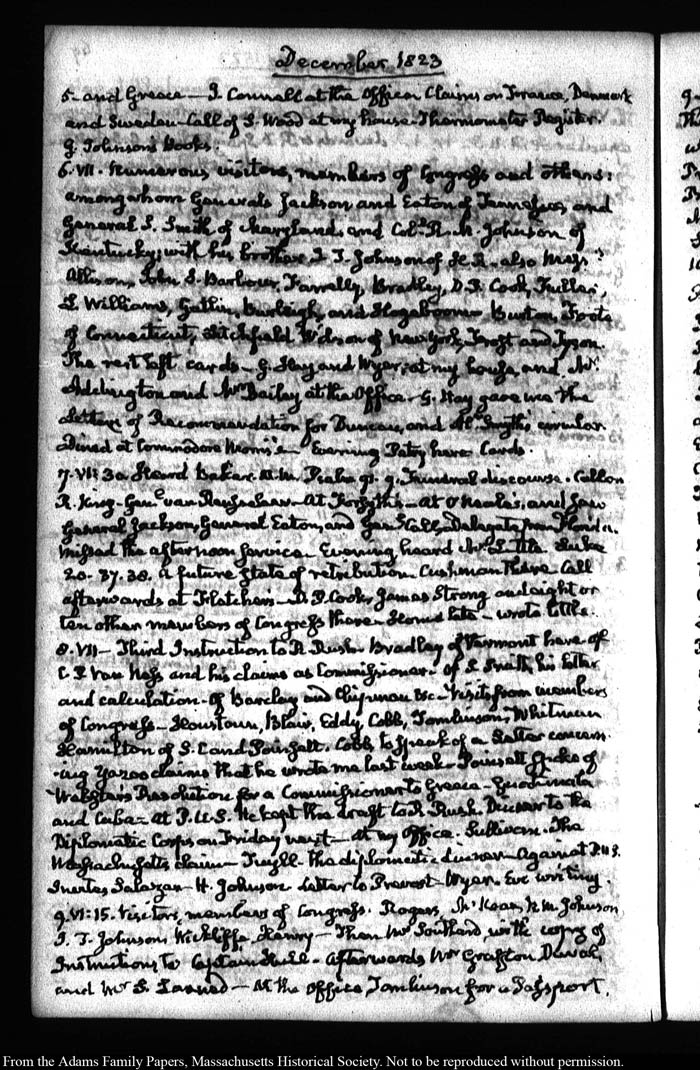 December 1823
5. and Greece — J. Connell at the Office Claims on France, Denmark
and Sweden. Call of S. Wood at my house. Thermometer Register.
J. Johnson's Books.
6. VII. Numerous visitors, members of Congress and others:
among whom Generals Jackson and Eaton of Tennessee, and
General S. Smith of Maryland, and Coll. R. M. Johnson of
Kentucky; with his brother J. T. Johnson of H.R. also Messrs
Allison, John S. Barbour, Farrelly, Bradley, D. P. Cook, Fuller,
L Williams, Gatlin, Burleigh, and Hogeboom Burton, Foote
of Connecticut, Litchfield Wilson of New York, Frost and Tyson.
The rest left cards — G. Hay and Wyer, at my house, and Mr
Addington and Mr Bailey at the Office — G. Hay gave me the
Letters of Recommendation for Duncan, and Smyth's circular
Dined at Commodore — Evening Party here Cards.
7. VI:30 Heard Baker A.M. Psalm 91. 9. Funeral discourse. Call on
R. King. Genl. van Rensselaer — At Forsyth's — at O'Neale's, and saw
General Jackson, General Eaton, and Genl. Call, Delegate from Florida.
Missed the afternoon service — Evening, heard Mr Little Luke
20. 37. 38. A future state of retribution. Cushman there. Call
afterwards at Fletcher's — D. P. Cook, James Strong and eight or
ten other members of Congress there. Home late — wrote little.
8. VII — Third Instruction to R Rush. Bradley of Vermont here of
C. P. Van Ness and his claims as Commissioner. Of S. Smith, his letter
and calculation. Of Barclay and Chipman &c — Visits from members
of Congress — Houstoun, Blair, Eddy, Cobb, Tomlinson, Whitman
Hamilton of S. C and Poinsett. Cobb, to speak of a Letter concern-
-ing Yazoo claims that he wrote me last week. Poinsett spoke of
Webster's Resolution for a Commissioner to Greece — Guatimala
and Cuba — At P. U.S. He kept the draft to R. Rush. Dinner to the
Diplomatic Corps on Friday next — At my Office. Sullivan. The
Massachusetts claim — Tuyll. the diplomatic dinner — against P.U.S.
Inertes Salazar — H. Johnson Letter to Prevost. Wyer. Eve writing.
9. VI:15. Visitors, members of Congress. Rogers, McKean, R. M. Johnson
J. T. Johnson Wickliffe Henry — Then Mr Southard, with copy of
Instructions to Captain Hull — afterwards Mr Grafton Duval,
and Mr S. Larned — At the office Tomlinson for a Passport.
From the Adams Family Papers, Massachusetts Historical Society. Not to be reproduced without permission.